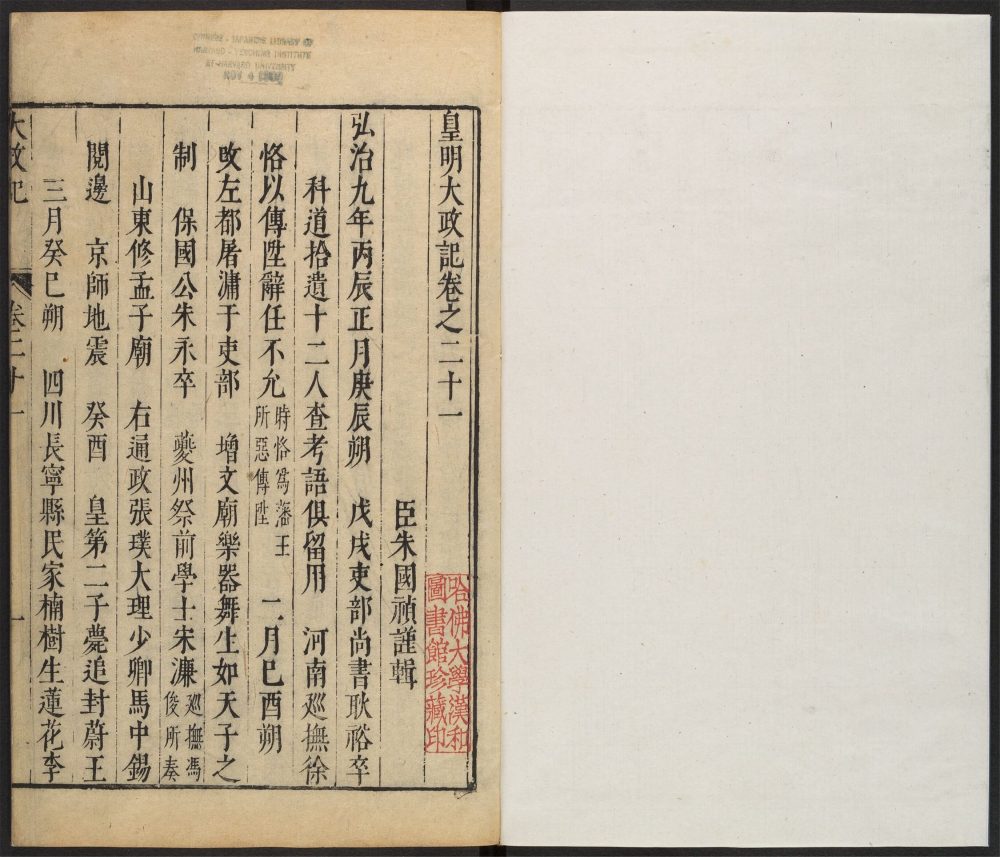 CHINESE - JAPANESE LIBRARY OF
HARVARD - YENCHING INSTITUTE
AT HARVARD UNIVERSITY
NOV 4
皇明大政記卷之二十一
臣朱國禎謹輯
哈佛大學漢和
圖書館珍藏印
弘治九年丙辰正月庚辰朔　戊戌吏部尚書耿裕卒
科道拾遺十二人查考語俱留用　河南巡撫徐
恪以傳陞辭任不允時恪爲藩王所惡傳陞　二月己酉朔
改左都屠滽于吏部　增文廟樂器舞生如天子之
制　保國公朱永卒　夔州祭前學士宋濂巡撫馮俊所奏
山東修孟子廟　右通政張璞大理少卿馬中錫
閱邊　京師地震　癸酉　皇第二子薨追封蔚王
三月癸巳朔　四川長寧縣民家楠樹生蓮花李
大政記　卷二十一　一